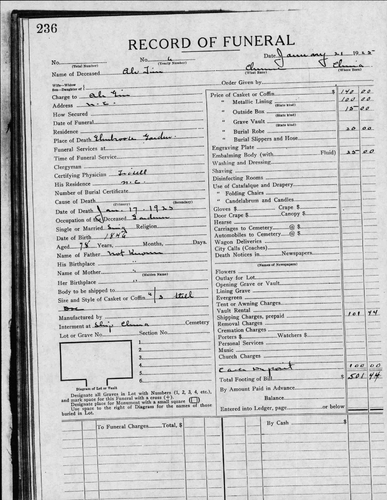 236
RECORD OF FUNERAL
No. No. 6 Date January 21 1925
(Total Number) (Yearly Number)
Name of Deceased Ah Jim China
(What Race) (Where Born)
Charge to Ah Jim Order Given by
Address N.C. Price of Casket or Coffin $ 140 00
How Secured " Metallic Lining 100 00
Date of Funeral " Outside Box 15 00
Residence " Grave Vault
Place of Death " Burial Robe 20 00
Funeral Services at " Burial Slippers and Hose
Time of Funeral Service Engraving Plate
Clergyman Embalming Body (with Fluid) 25 00
Certifying Physician Washing and Dressing
His Residence N.C. Shaving
Number of Burial Certificate Disinfecting Rooms
Cause of Death Use of Catafalque and Drapery
(Primary) " Folding Chairs
Date of Death Jan. 17, 1925 " Candelabrum and Candles
Occupation of the Deceased Gardener Gloves $ Crape $
Single or Married Sing Religion Door Crape $ Canopy $
Date of Birth 1846 Hearse
Aged 78 Years, Months, Days. Carriages to Cemetery @ $
Name of Father Not Known Automobiles to Cemetery @ $
His Birthplace " Wagon Deliveries
Name of Mother " City Calls (Coaches)
Her Birthplace " Death Notices in Newspapers
Body to be shipped to Flowers
Size and Style of Casket or Coffin Outlay for Lots
Manufactured by Opening Grave or Vault
Interment at Ship China Cemetery Lining Grave
Lot or Grave No. Section No. Evergreen
Tent or Awning Charges
Vault Rental
Shipping Charges, prepaid 101 44
Removal Charges
Cremation Charges
Porters $ Watchers $
Personal Services
Music
Church Charges
100 00
Total Footing of Bill $ 501 44
Diagram of Lot or Vault By Amount Paid in Advance
Designate all Graves in Lot with Numbers (1, 2, 3, 4, etc.), Balance
and mark space for this Funeral with a cross (+).
Designate place for Monument with a small square
Use space to right of Diagram for the names of those Entered into Ledger, page or below:
buried in Lot.
By Cash $